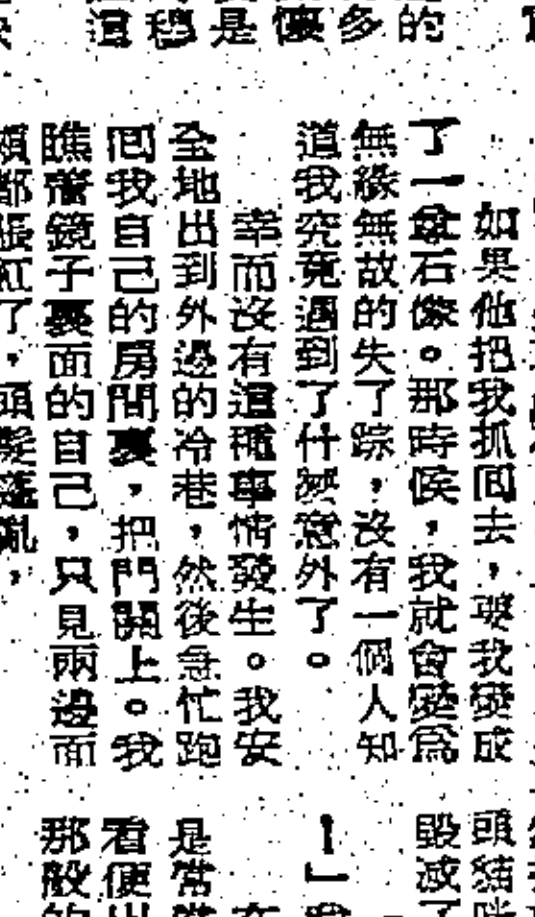 的
多
是
這
如果他把我抓囘去，要我變成
了一尊石像。那時候，我就會變爲
無緣無故的失了踪，沒有一個人知
道我究竟遇到了什麽意外了。
幸而沒有這種事情發生。我安
全地出到外邊的冷巷，然後急忙跑
囘我自己的房間裏，把門關上。我
瞧着鏡子裏面的自己，只見兩邊面
頰都脹紅了，頭髮蓬亂，
頭
毀滅了
！」
是當
看便出
那般的